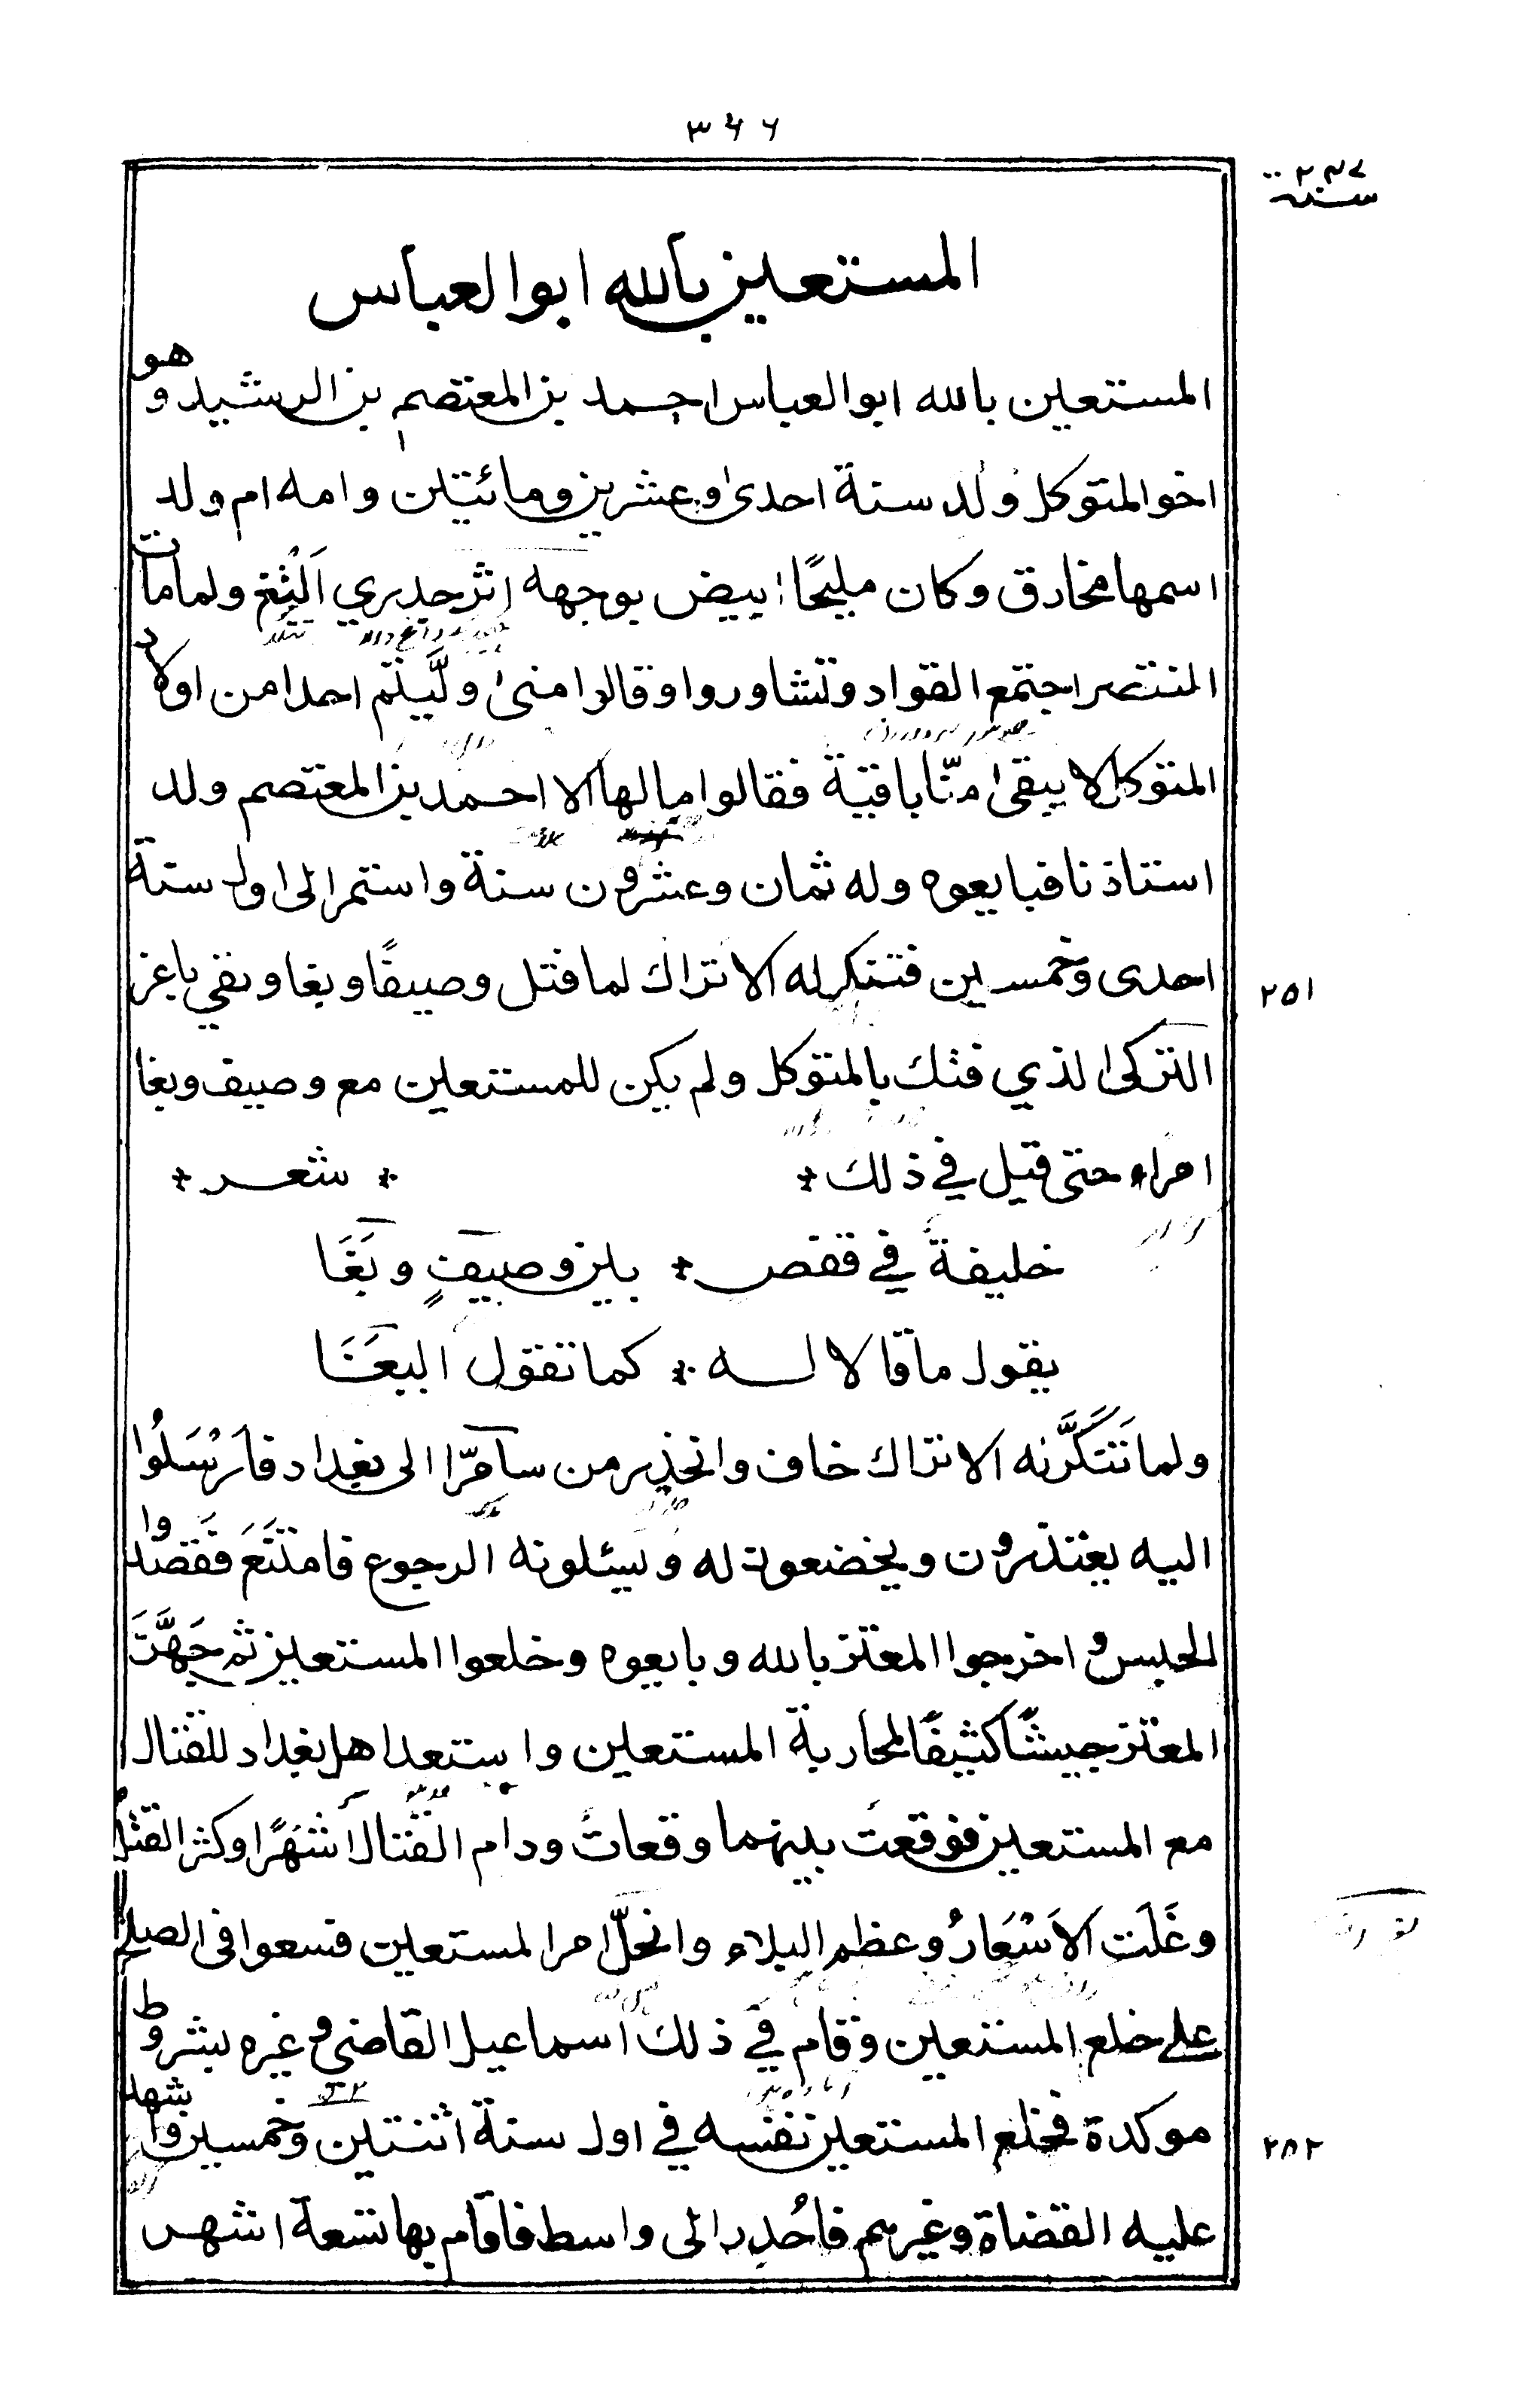 ٣٤٦
سنة ٢٤٧
المستعين بالله ابو العباس
المستعين بالله ابو العباس احمد بن المعتصم بن الرشيد وهو
اخو المتوكل ولد سنة احدى وعشرين ومائتين وامه ام ولد
اسمها مخارق وكان مليحًا ابيض بوجهه اثر جدري اَلْثغ ولما مات
المنتصر اجتمع القواد وتشاوروا وقالوا متى ولَّيتم احدا من اولاد
المتوكل لا يبقى منّا باقية فقالوا ما لها الا احمد بن المعتصم ولد
استاذنا فبايعوه وله ثمان وعشرون سنة واستمر الى اول سنة
احدى وخمسين فتنكر له الاتراك لما قتل وصيفًا وبغا ونفي باغر
٢٥١
التركى الذي فتك بالمتوكل ولم يكن للمستعين مع وصيف وبغا
امراء حتى قيل في ذلك * * شعر *
خليفة في قفص * بين وصيفٍ وبَغَا
يقول ما قالا له * كما تقول الببغَا
ولما تَنَكَّر له الاتراك خاف وانحدر من سامرّا الى بغداد فاَرْسَلُوا
اليه يعتذرون ويخضعون له ويسئلونه الرجوع فامتنَعَ فَقصدوا
الحبس واخرجوا المعتز بالله وبايعوه وخلعوا المستعين ثم جَهَّزَ
المعتز جيشًا كثيفًا لمحاربة المستعين واستعد اهل بغداد للقتال
مع المستعين فوقعت بينهما وقعات ودام القتال اَشهُرًا وكثر القتل
وغَلَت الاَسْعَارُ وعظم البلاء وانحلّ امر المستعين فسعوا فى الصلح
على خلع المستعين وقام في ذلك اسماعيل القاضى وغيره بشروط
موكدة فخلع المستعين نفسه في اول سنة اثنتين وخمسين واشهد
٢٥٢
عليه القضاة وغيرهم فاُحْدِر الى واسط فاقام بها تسعة اشهر